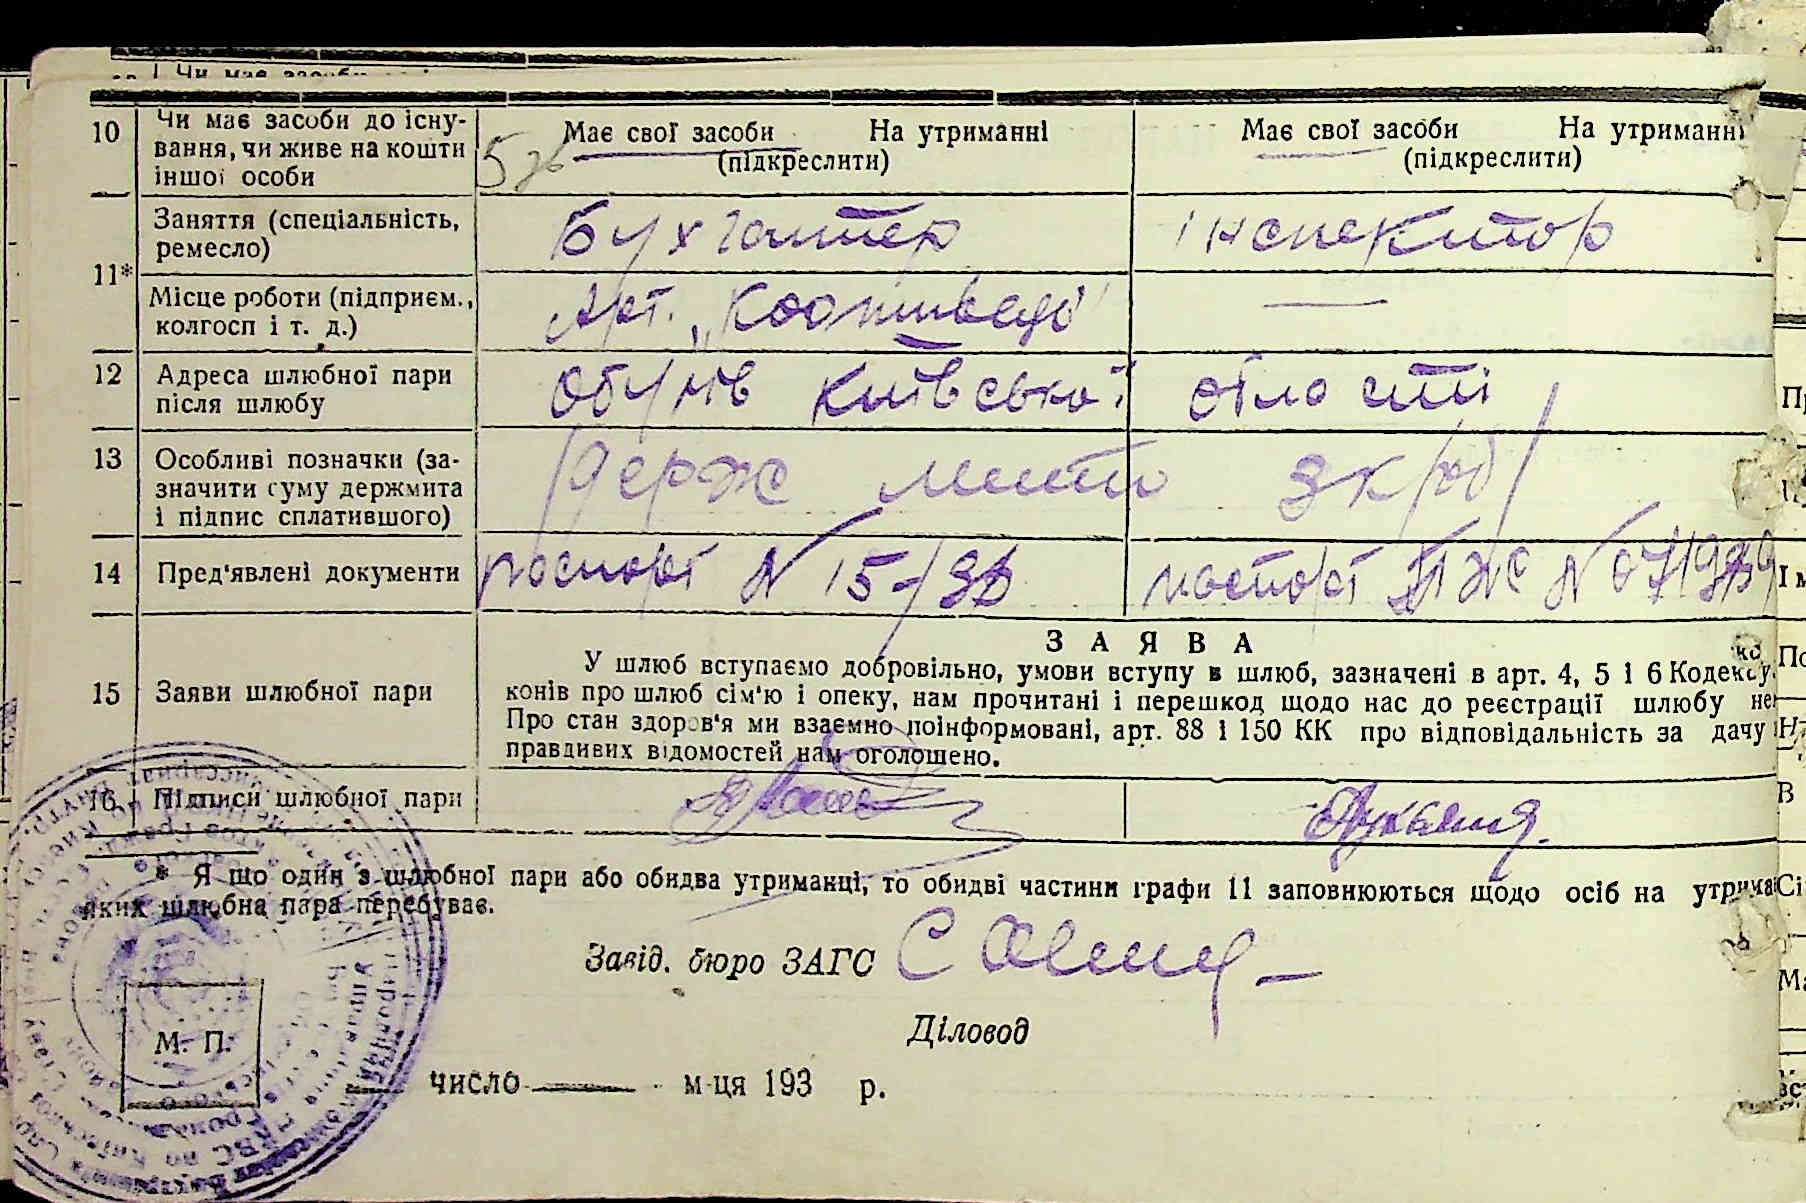 10 Чи має засоби до існу-
вання, чи живе на кошти
іншої особи
Має свої засоби На утриманні
(підкреслити)
Має свої засоби На утриманні
(підкреслити)
11*
Заняття (спеціальність,
ремесло)
Бухгалтер
інспектор
Місце роботи (підприєм.,
колгосп і т. д.)
Арт.
—
12 Адреса шлюбної пари
після шлюбу
Обухів Київської області
13 Особливі позначки (за-
значити суму держмита
і підпис сплатившого)
Держ мито 3 крб
14 Пред'явлені документи
паспорт N
паспорт N
15 Заяви шлюбної пари
ЗАЯВА
У шлюб вступаємо добровільно, умови вступу в шлюб, зазначені в арт. 4, 5 і 6 Кодексу
конів про шлюб сім'ю і опеку, нам прочитані і перешкод щодо нас до реєстрації шлюбу не
Про стан здоров'я ми взаємно поінформовані, арт. 88 і 150 КК про відповідальність за дачу
правдивих відомостей нам оголошено.
16. Підписи шлюбної пари
* Якщо один з шлюбної пари або обидва утриманці, то обидві частини графи 11 заповнюються щодо осіб на утрима
яких шлюбна пара перебуває.
Завід. бюро ЗАГС
Діловод
М. П.
число — м-ця 193 р.